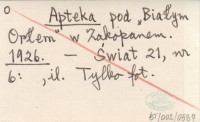 o
Apteka pod „Białym
Orłem" w Zakopanem.
1926. – Świat 21, nr
6: , il. Tylko fot.